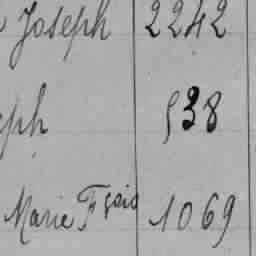 Joseph 2242
eph 538
Marie Fçois 1069